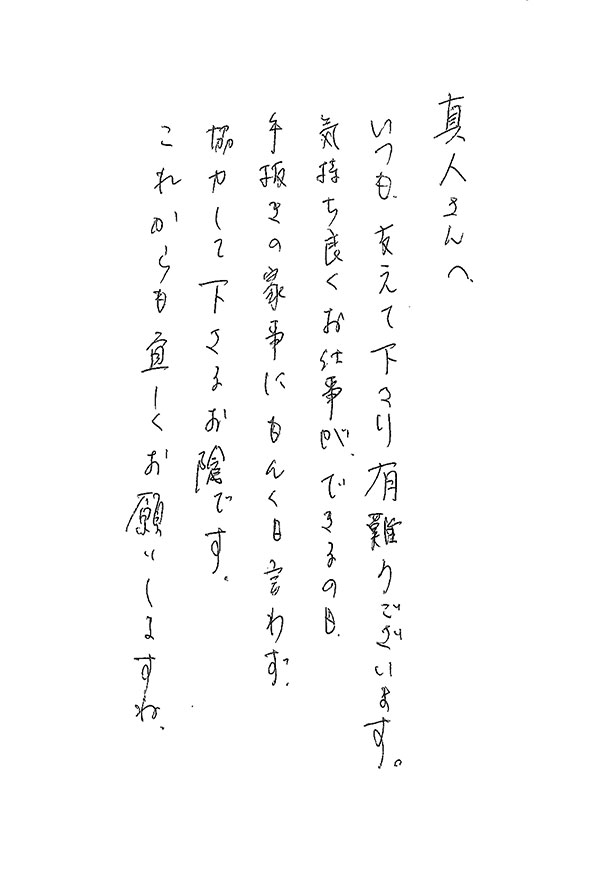 真人さんへ
いつも、支えて下さり有難うございます。
気持ち良くお仕事が、できるのも、
手抜きの家事にもんくも言わず、
協力して下さるお陰です。
これからも宜しくお願いしますね、